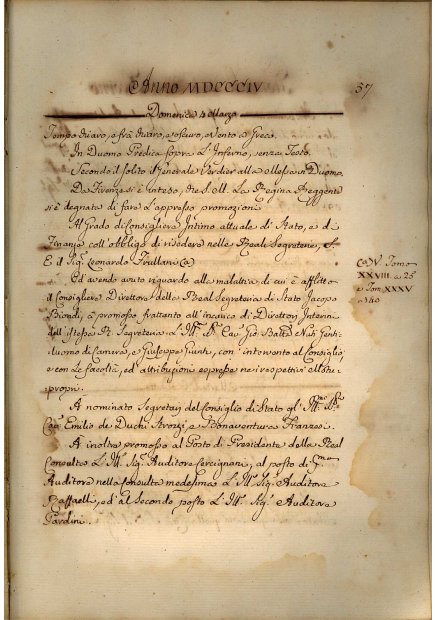 Anno MDCCCIV
37
Domenica 4 Marzo
Tempo chiaro, e frà chiaro, e oscuro, e Vento a Greco.
In Duomo Predica sopra L'Inferno, senza Testo.
Secondo il solito il Generale Verdier alla Messa in Duomo.
Da Firenze si è inteso, che S. M. La Regina Reggente
si è degnata di fare L'appresso promozioni.
Al Grado di Consigliere Intimo attuale di Stato, e di
Finanza coll'obbligo di risedere nelle Reali Segreterie,
E il Sig.r Leonardo Frullani (a)
Ed avendo avuto riguardo alla malattia di cui è afflitto
il Consigliere Direttore della Real Segreteria di Stato Jacopo
Biondi, à promosso frattanto all'incarico di Direttori Interini
dell'istessa R. Segreteria L'Ill. Cav. Gio. Batta Nuti Genti-
luomo di Camera, e Giuseppe Giunti, con intervento al Consiglio,
e con Le facoltà, ed attribuzioni espresse nei respettivi
propri.
A nominato Segretari del Consiglio di Stato gl'Ill.
Cav. Emilio de Duchi Strozzi e Bonaventura Franzesi.
A inoltre promosso al Posto di Presidente della Real
Consulta L'Ill. Sig. Auditore Cercignani, al posto di P.mo
Auditore nella Consulta medesima L'Ill. Sig. Auditore
Raffaelli, ed al Secondo posto L'Ill. Sig. Auditore
Gardini.
(a) V. Tomo
XXVIII. a 25
e Tom. XXXV
a 40